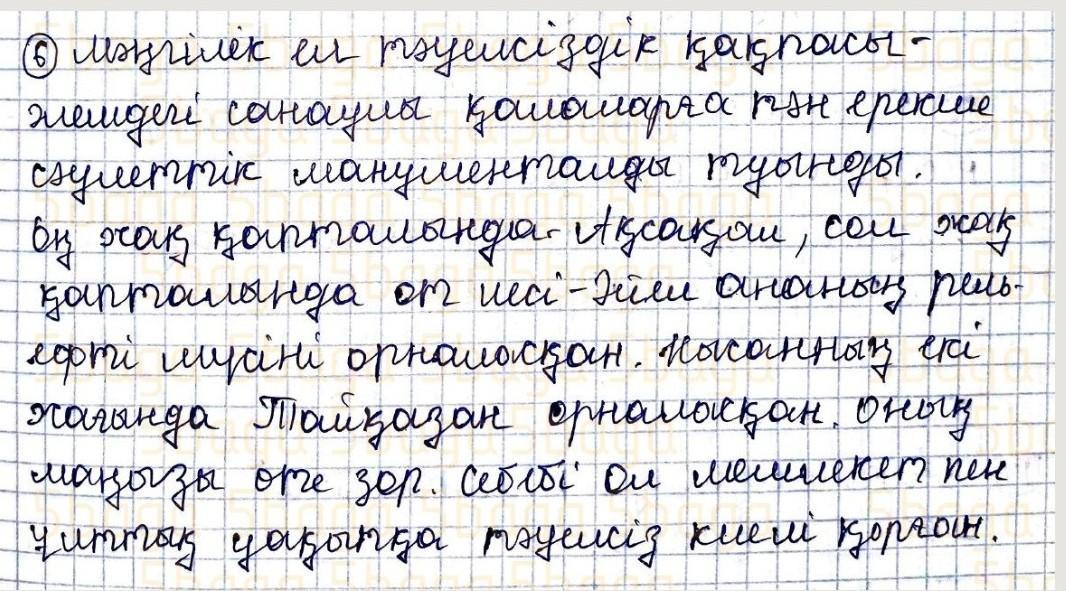 ⑥ Мәңгілік ел тәуелсіздік қақпасы-
әлемдегі санаулы қалаларға тән ерекше
сәулеттік манументалды туынды.
Оң жақ қапталында. Ақсақал, сол жақ
қапталында от иесі-Әйел ананың рель-
ефті мүсіні орналасқан. Нысанның екі
жағында Тайқазан орналасқан. Оның
маңызы өте зор. Себебі ол мемлекет пен
ұлттық уақытқа тәуелсіз киелі қорған.